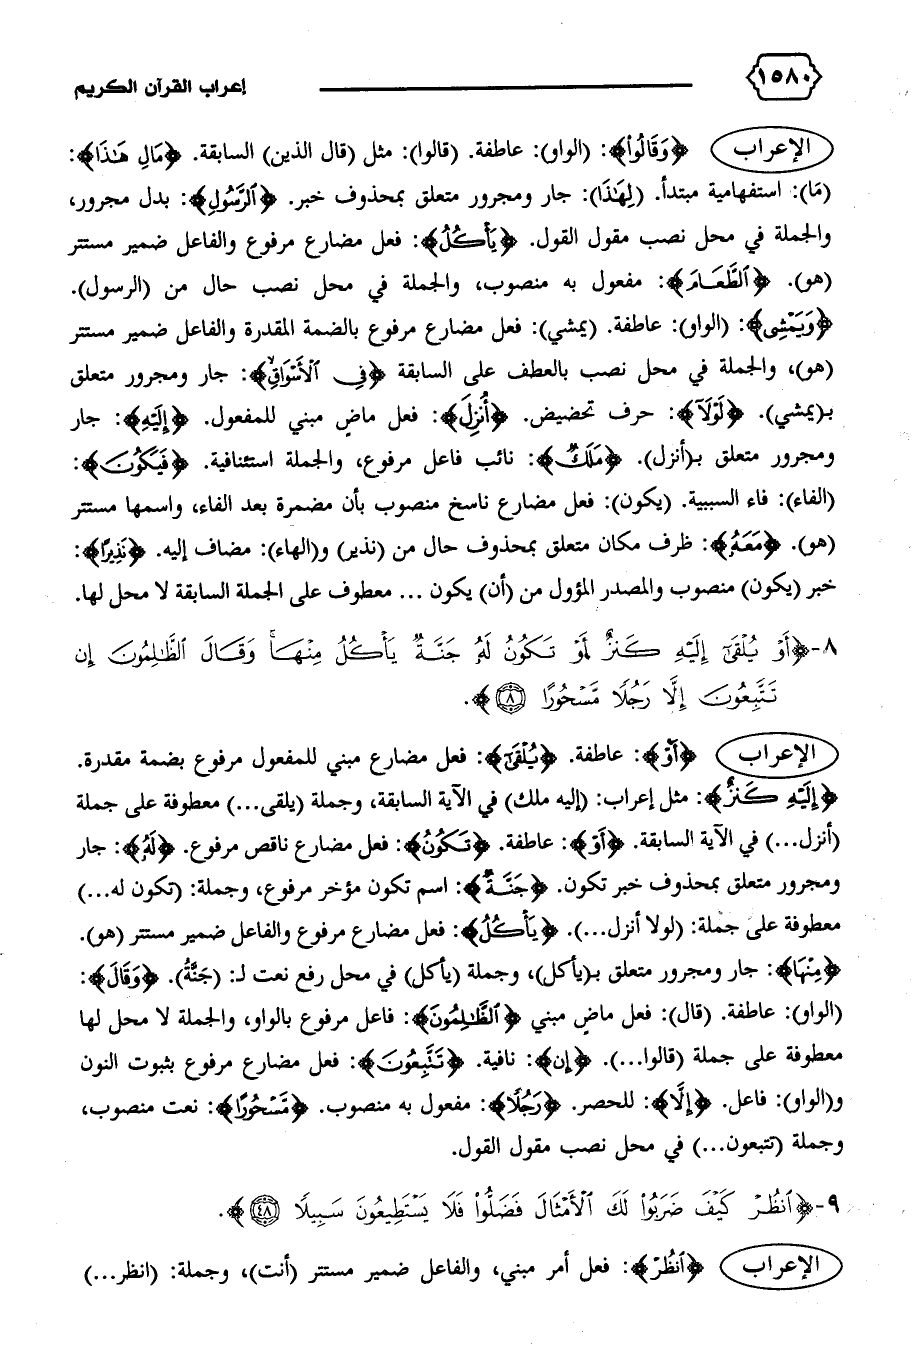 ١٥٨٠ إعراب القرآن الكريم
الإعراب ﴿وَقَالُوا۟﴾: (الواو): عاطفة. (قالوا): مثل (قال الذين) السابقة. ﴿مَالِ هَـٰذَا﴾:
(مَا): استفهامية مبتدأ. (لِهَـٰذَا): جار ومجرور متعلق بمحذوف خبر. ﴿ٱلرَّسُولِ﴾: بدل مجرور،
والجملة في محل نصب مقول القول. ﴿يَأْكُلُ﴾: فعل مضارع مرفوع والفاعل ضمير مستتر
(هو). ﴿ٱلطَّعَامَ﴾: مفعول به منصوب، والجملة في محل نصب حال من (الرسول).
﴿وَيَمْشِى﴾: (الواو): عاطفة. (يمشي): فعل مضارع مرفوع بالضمة المقدرة والفاعل ضمير مستتر
(هو)، والجملة في محل نصب بالعطف على السابقة ﴿فِى ٱلْأَسْوَاقِ ۙ﴾: جار ومجرور متعلق
بـ(يمشي). ﴿لَوْلَآ﴾: حرف تحضيض. ﴿أُنزِلَ﴾: فعل ماضٍ مبني للمفعول. ﴿إِلَيْهِ﴾: جار
ومجرور متعلق بـ(أنزل). ﴿مَلَكٌ﴾: نائب فاعل مرفوع، والجملة استئنافية. ﴿فَيَكُونَ﴾:
(الفاء): فاء السببية. (يكون): فعل مضارع ناسخ منصوب بأن مضمرة بعد الفاء، واسمها مستتر
(هو). ﴿مَعَهُۥ﴾: ظرف مكان متعلق بمحذوف حال من (نذير) و(الهاء): مضاف إليه. ﴿نَذِيرًا﴾:
خبر (يكون) منصوب والمصدر المؤول من (أن) يكون ... معطوف على الجملة السابقة لا محل لها.
٨-﴿أَوْ يُلْقَىٰٓ إِلَيْهِ كَنزٌ أَوْ تَكُونُ لَهُۥ جَنَّةٌ يَأْكُلُ مِنْهَا ۚ وَقَالَ ٱلظَّـٰلِمُونَ إِن
تَتَّبِعُونَ إِلَّا رَجُلًا مَّسْحُورًا ٨﴾.
الإعراب ﴿أَوْ﴾: عاطفة. ﴿يُلْقَىٰٓ﴾: فعل مضارع مبني للمفعول مرفوع بضمة مقدرة.
﴿إِلَيْهِ كَنزٌ﴾: مثل إعراب: (إليه ملك) في الآية السابقة، وجملة (يلقى...) معطوفة على جملة
(أنزل...) في الآية السابقة. ﴿أَوْ﴾: عاطفة. ﴿تَكُونُ﴾: فعل مضارع ناقص مرفوع. ﴿لَهُۥ﴾: جار
ومجرور متعلق بمحذوف خبر تكون. ﴿جَنَّةٌ﴾: اسم تكون مؤخر مرفوع، وجملة: (تكون له...)
معطوفة على جملة: (لولا أنزل...). ﴿يَأْكُلُ﴾: فعل مضارع مرفوع والفاعل ضمير مستتر (هو).
﴿مِنْهَا﴾: جار ومجرور متعلق بـ(يأكل)، وجملة (يأكل) في محل رفع نعت لـ: (جَنَّةٌ). ﴿وَقَالَ﴾:
(الواو): عاطفة. (قال): فعل ماضٍ مبني ﴿ٱلظَّـٰلِمُونَ﴾: فاعل مرفوع بالواو، والجملة لا محل لها
معطوفة على جملة (قالوا...). ﴿إِن﴾: نافية. ﴿تَتَّبِعُونَ﴾: فعل مضارع مرفوع بثبوت النون
و(الواو): فاعل. ﴿إِلَّا﴾: للحصر. ﴿رَجُلًا﴾: مفعول به منصوب. ﴿مَّسْحُورًا﴾: نعت منصوب،
وجملة (تتبعون...) في محل نصب مقول القول.
٩-﴿ٱنظُرْ كَيْفَ ضَرَبُوا۟ لَكَ ٱلْأَمْثَالَ فَضَلُّوا۟ فَلَا يَسْتَطِيعُونَ سَبِيلًا ٤٨﴾.
الإعراب ﴿ٱنظُرْ﴾: فعل أمر مبني، والفاعل ضمير مستتر (أنت)، وجملة: (انظر...)